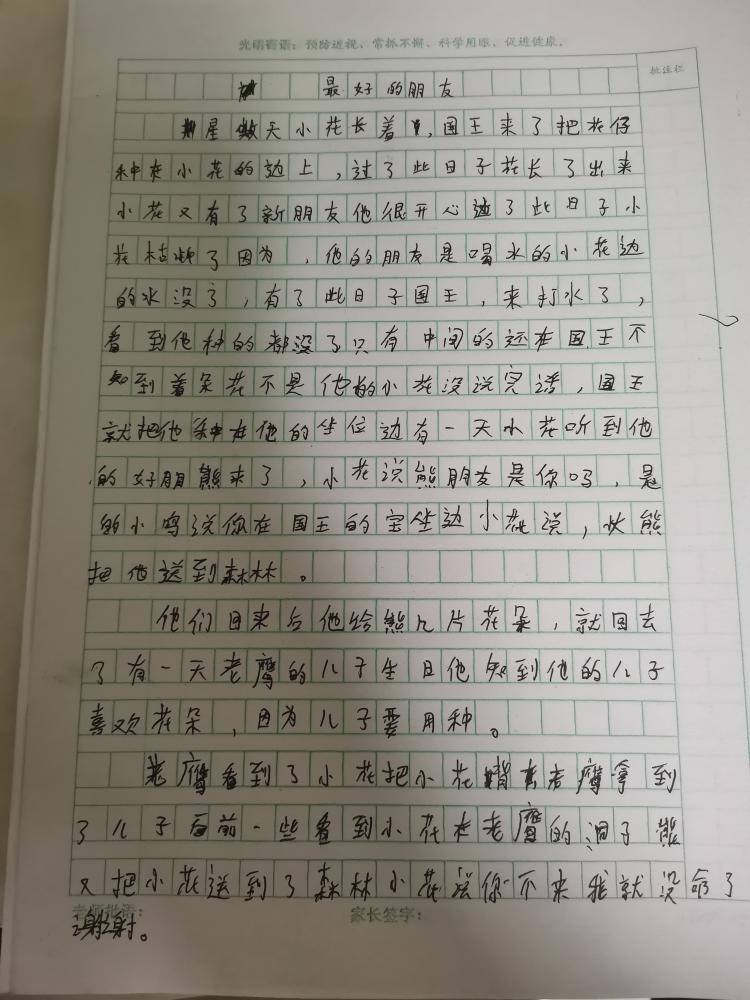 光明寄语：预防近视、常抓不懈、科学用眼、促进健康。
批注栏
最好的朋友
星做天小花长着，国王来了把花仔
种在小花的边上，过了些日子花长了出来
小花又有了新朋友他很开心过了些日子小
花枯了因为，他的朋友是喝水的小花边
的水没了，有了些日子国王，来打水了，
看到他种的都没了只有中间的还在国王不
知到着朵花不是他的小花没说完话，国王
就把他种在他的坐位边有一天小花听到他
的好朋熊来了，小花说熊朋友是你吗，是
的小鸣说你在国王的宝坐边小花说，伏熊
把他送到森林。
他们回来后他给熊几片花朵，就回去
了有一天老鹰的儿子生日他知到他的儿子
喜欢花朵，因为儿子要用种。
老鹰看到了小花把小花老鹰拿到
了儿子面前一些看到小花在老鹰的洞子熊
又把小花送到了森林小花说你不来我就没命了
老师批语：
家长签字：
谢谢。